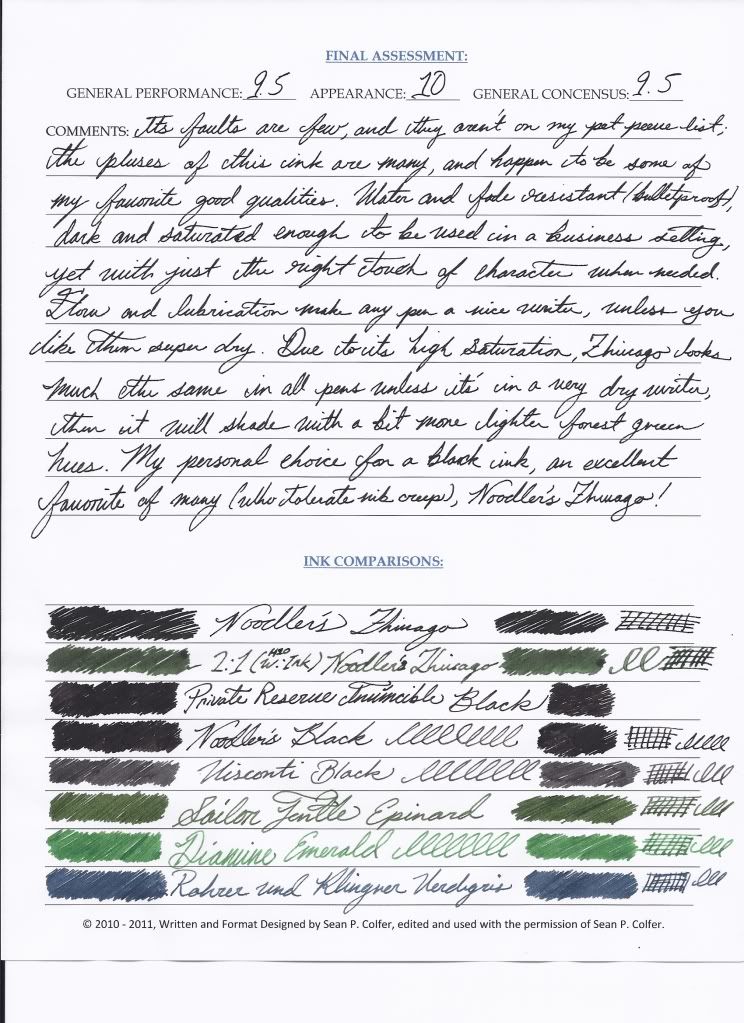 FINAL ASSESSMENT:
GENERAL PERFORMANCE: 9.5 APPEARANCE: 10 GENERAL CONCENSUS: 9.5
COMMENTS: Its faults are few, and they aren't on my pet peeve list;
the pluses of this ink are many, and happen to be some of
my favorite good qualities. Water and fade resistant (bulletproof),
dark and saturated enough to be used in a business setting,
yet with just the right touch of character when needed.
Flow and lubrication make any pen a nice writer, unless you
like them super dry. Due to its high saturation, Zhivago looks
much the same in all pens unless it's in a very dry writer,
then it will shade with a bit more lighter forest green
hues. My personal choice for a black ink, an excellent
favorite of many (who tolerate nib creep), Noodler's Zhivago!
INK COMPARISONS:
Noodler's Zhivago
2:1 (H2O W:Ink) Noodler's Zhivago
Private Reserve Invincible Black
Noodler's Black
Visconti Black
Sailor Jentle Epinard
Diamine Emerald
Rohrer und Klingner Verdigris
© 2010 - 2011, Written and Format Designed by Sean P. Colfer, edited and used with the permission of Sean P. Colfer.